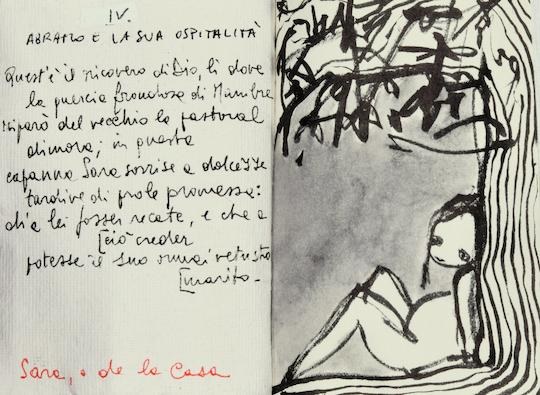 IV.
ABRAMO E LA SUA OSPITALITÀ
Quest'è il ricovero di Dio, lì dove
la quercia frondosa di Mambre
riparò del vecchio la pastoral
dimora; in questa
capanna Sara sorrise a dolcezze
tardive di prole promessa:
di a lei fosser recate, e che a
[ciò creder
potesse il suo ormai vetusto
[marito -
Sara, o de la Casa